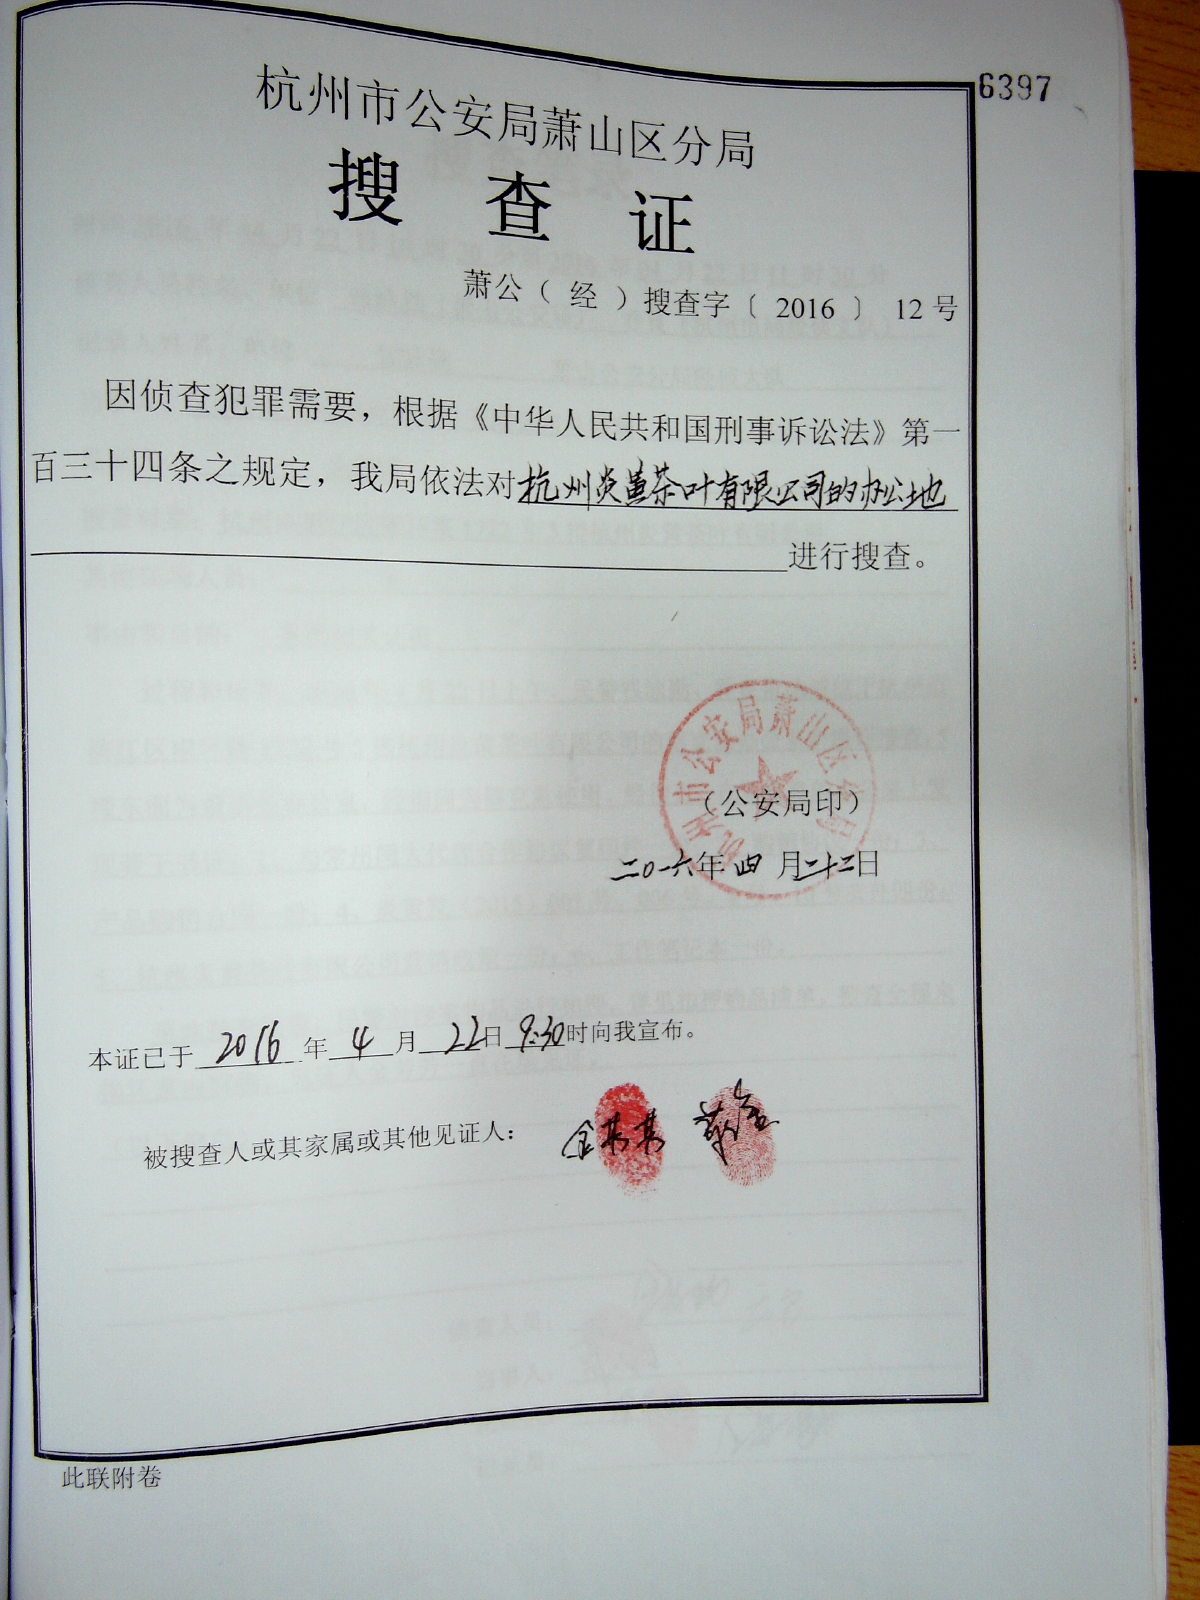 6397
杭州市公安局萧山区分局
搜查证
萧公（经）搜查字〔2016〕12号
因侦查犯罪需要，根据《中华人民共和国刑事诉讼法》第一
百三十四条之规定，我局依法对杭州炎黄茶叶有限公司的办公地
进行搜查。
杭州市公安局萧山区分局
（公安局印）
二0一六年四月二十二日
本证已于2016年4月22日9:30时向我宣布。
被搜查人或其家属或其他见证人：
此联附卷